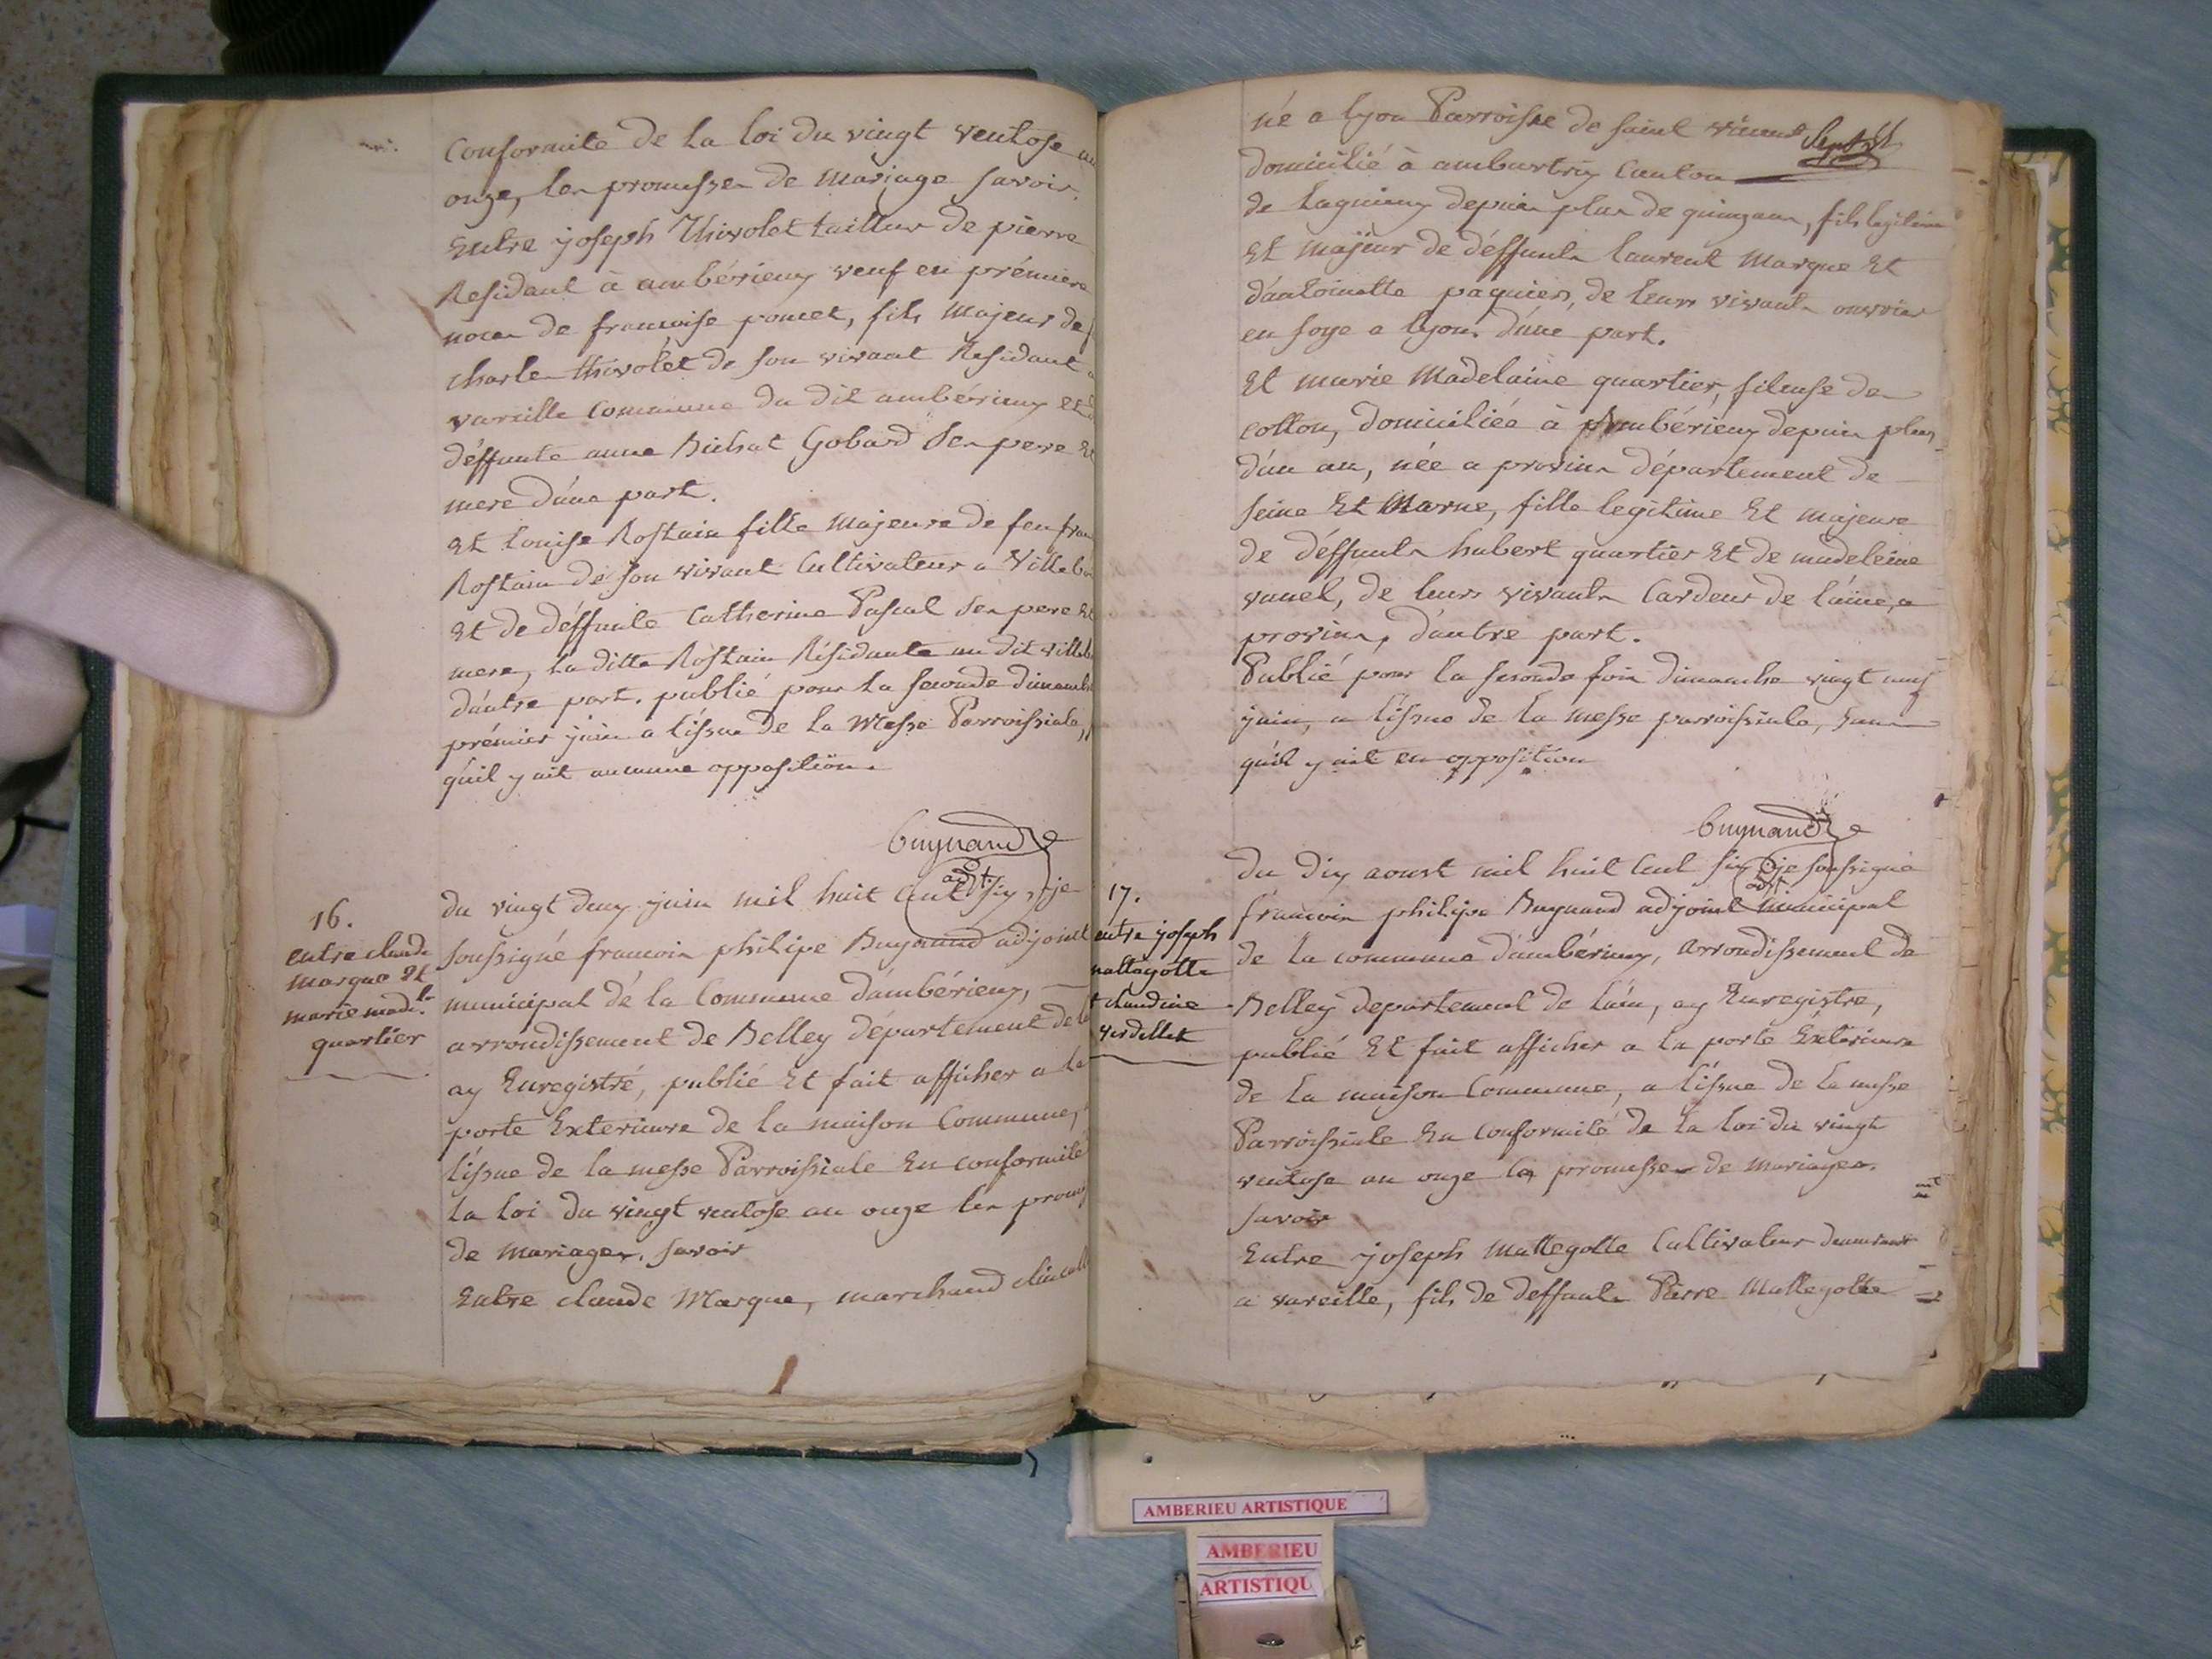 conformité de la loi du vingt ventose an
onze, les promesses de mariage savoir.
Entre joseph Thivolet tailleur de pierre
Residant à ambérieux veuf en prémiere
noces de francoise poncet, fils majeur de
charles thivolet de son vivant Residant
vareille commune du dit ambérieux et
déffunte anne Bichat Gobard ses pere Et
mere d'une part.
Et Louise Rostain fille majeure de feu
Rostain de son vivant Cultivateur a
Et de déffunte Catherine Pascal ses pere Et
mere, la ditte Rostain Résidante au dit
d'autre part. publié pour la seconde
prémier juin a l'issue de la Messe Parroissiale,
qu'il y ait aucunne opposition.
Buynand
adjt.
16.
entre claude
marque Et
marie madle.
quartier
du vingt deux juin mil huit cent six, je
soussigné francois philipe Buynand adjoint
municipal dé la Commune d'ambérieux,
arrondissement de Belley département de
ay Enregistré, publié Et fait afficher a la
porte Exterieure de la maison Commune,
l'issue de la messe Parroissiale En conformité
la loi du vingt ventose an onze les
de mariages. savoir
Entre claude Marque, marchand
né a lyon Parroisse de saint vincent
domicilié à ambutrix canton
de Lagnieux depuis plus de quinze ans, fils legitime
Et majeur de déffunts laurent Marque Et
d'antoinette paquier, de leurs vivants ouvrier
en soye a lyon. d'une part.
Et marie Madelaine quartier, fileuse de
cotton, domiciliée à Ambérieux depuis plus
d'un an, née a provins département de
seine Et Marne, fille legitime Et majeure
de déffunts hubert quartier Et de madeleine
vanel, de leurs vivants Cardeur de laine, a
provins, d'autre part.
Publié pour la seconde fois dimanche vingt neuf
juin, a l'issue de la messe parroissiale, sans
qu'il y ait eu opposition
Buynand
adjt.
17.
entre joseph
mattegotte
et claudine
verdellet
du dix aoust mil huit cent six, je soussigné
francois philipe Buynand adjoint municipal
de la commune d'ambérieux, arrondissement de
Belley departement de l'ain, ay Enregistre,
publié Et fait afficher a la porte Exterieure
de la maison Commune, a l'issue de la messe
Parroissiale En conformité de la loi du vingt
ventose an onze les promesses de mariages.
savoir
Entre joseph Mattegotte Cultivateur demeurant
a vareille, fils de deffunts Pierre Mattegotte
AMBERIEU ARTISTIQUE
AMBERIEU
ARTISTIQU